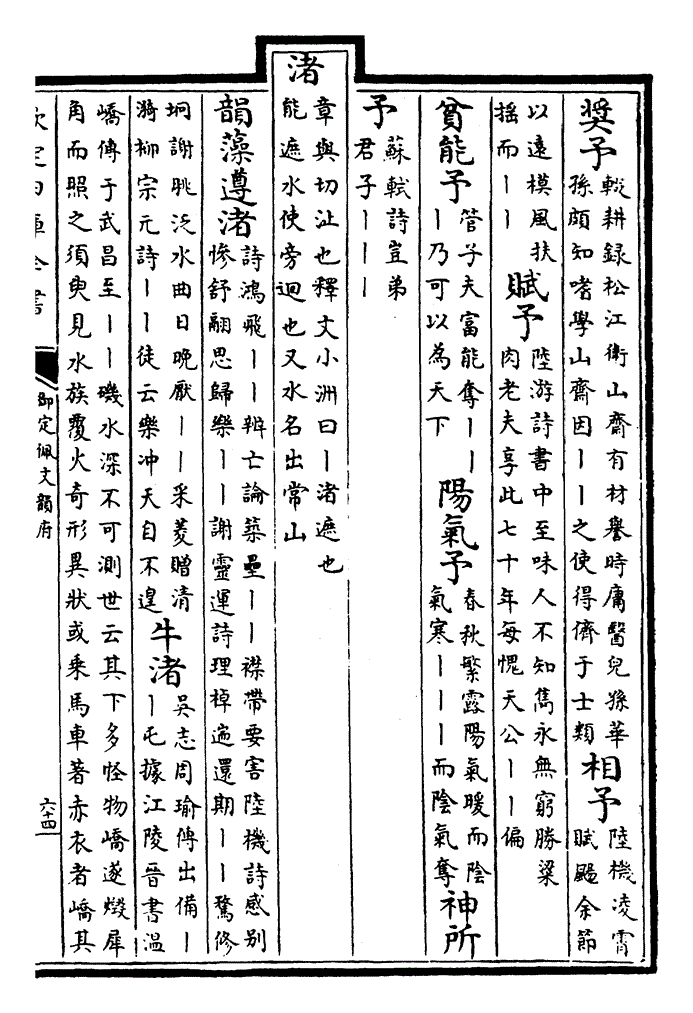 奨予輟耕録松江衛山齋有材譽時庸醫兒孫華
孫頗知嗜學山齋因丨丨之使得儕于士類相予陸機凌霄
賦颺余節
以遠模風扶
揺而丨丨賦予陸游詩書中至味人不知雋永無窮勝粱
肉老夫享此七十年每愧天公丨丨偏
貧能予管子夫富能奪丨丨
丨乃可以為天下陽氣予春秋繁露陽氣暖而陰
氣寒丨丨丨而陰氣奪神所
予蘇軾詩豈弟
君子丨丨丨
渚章與切沚也釋文小洲曰丨渚遮也
能遮水使旁迴也又水名出常山
韻藻遵渚詩鴻飛丨丨辨亡論築壘丨丨襟帶要害陸機詩感别
慘舒翮思歸樂丨丨謝靈運詩理棹遄還期丨丨騖修
坰謝朓泛水曲日晚厭丨丨采菱贈清
漪栁宗元詩丨丨徒云樂冲天自不遑牛渚吳志周瑜傳出備丨
丨屯據江陵晉書温
嶠傳于武昌至丨丨磯水深不可測世云其下多怪物嶠遂燬犀
角而照之須臾見水族覆火奇形異狀或乘馬車著赤衣者嶠其
欽定四庫全書
御定佩文韻府
六十四